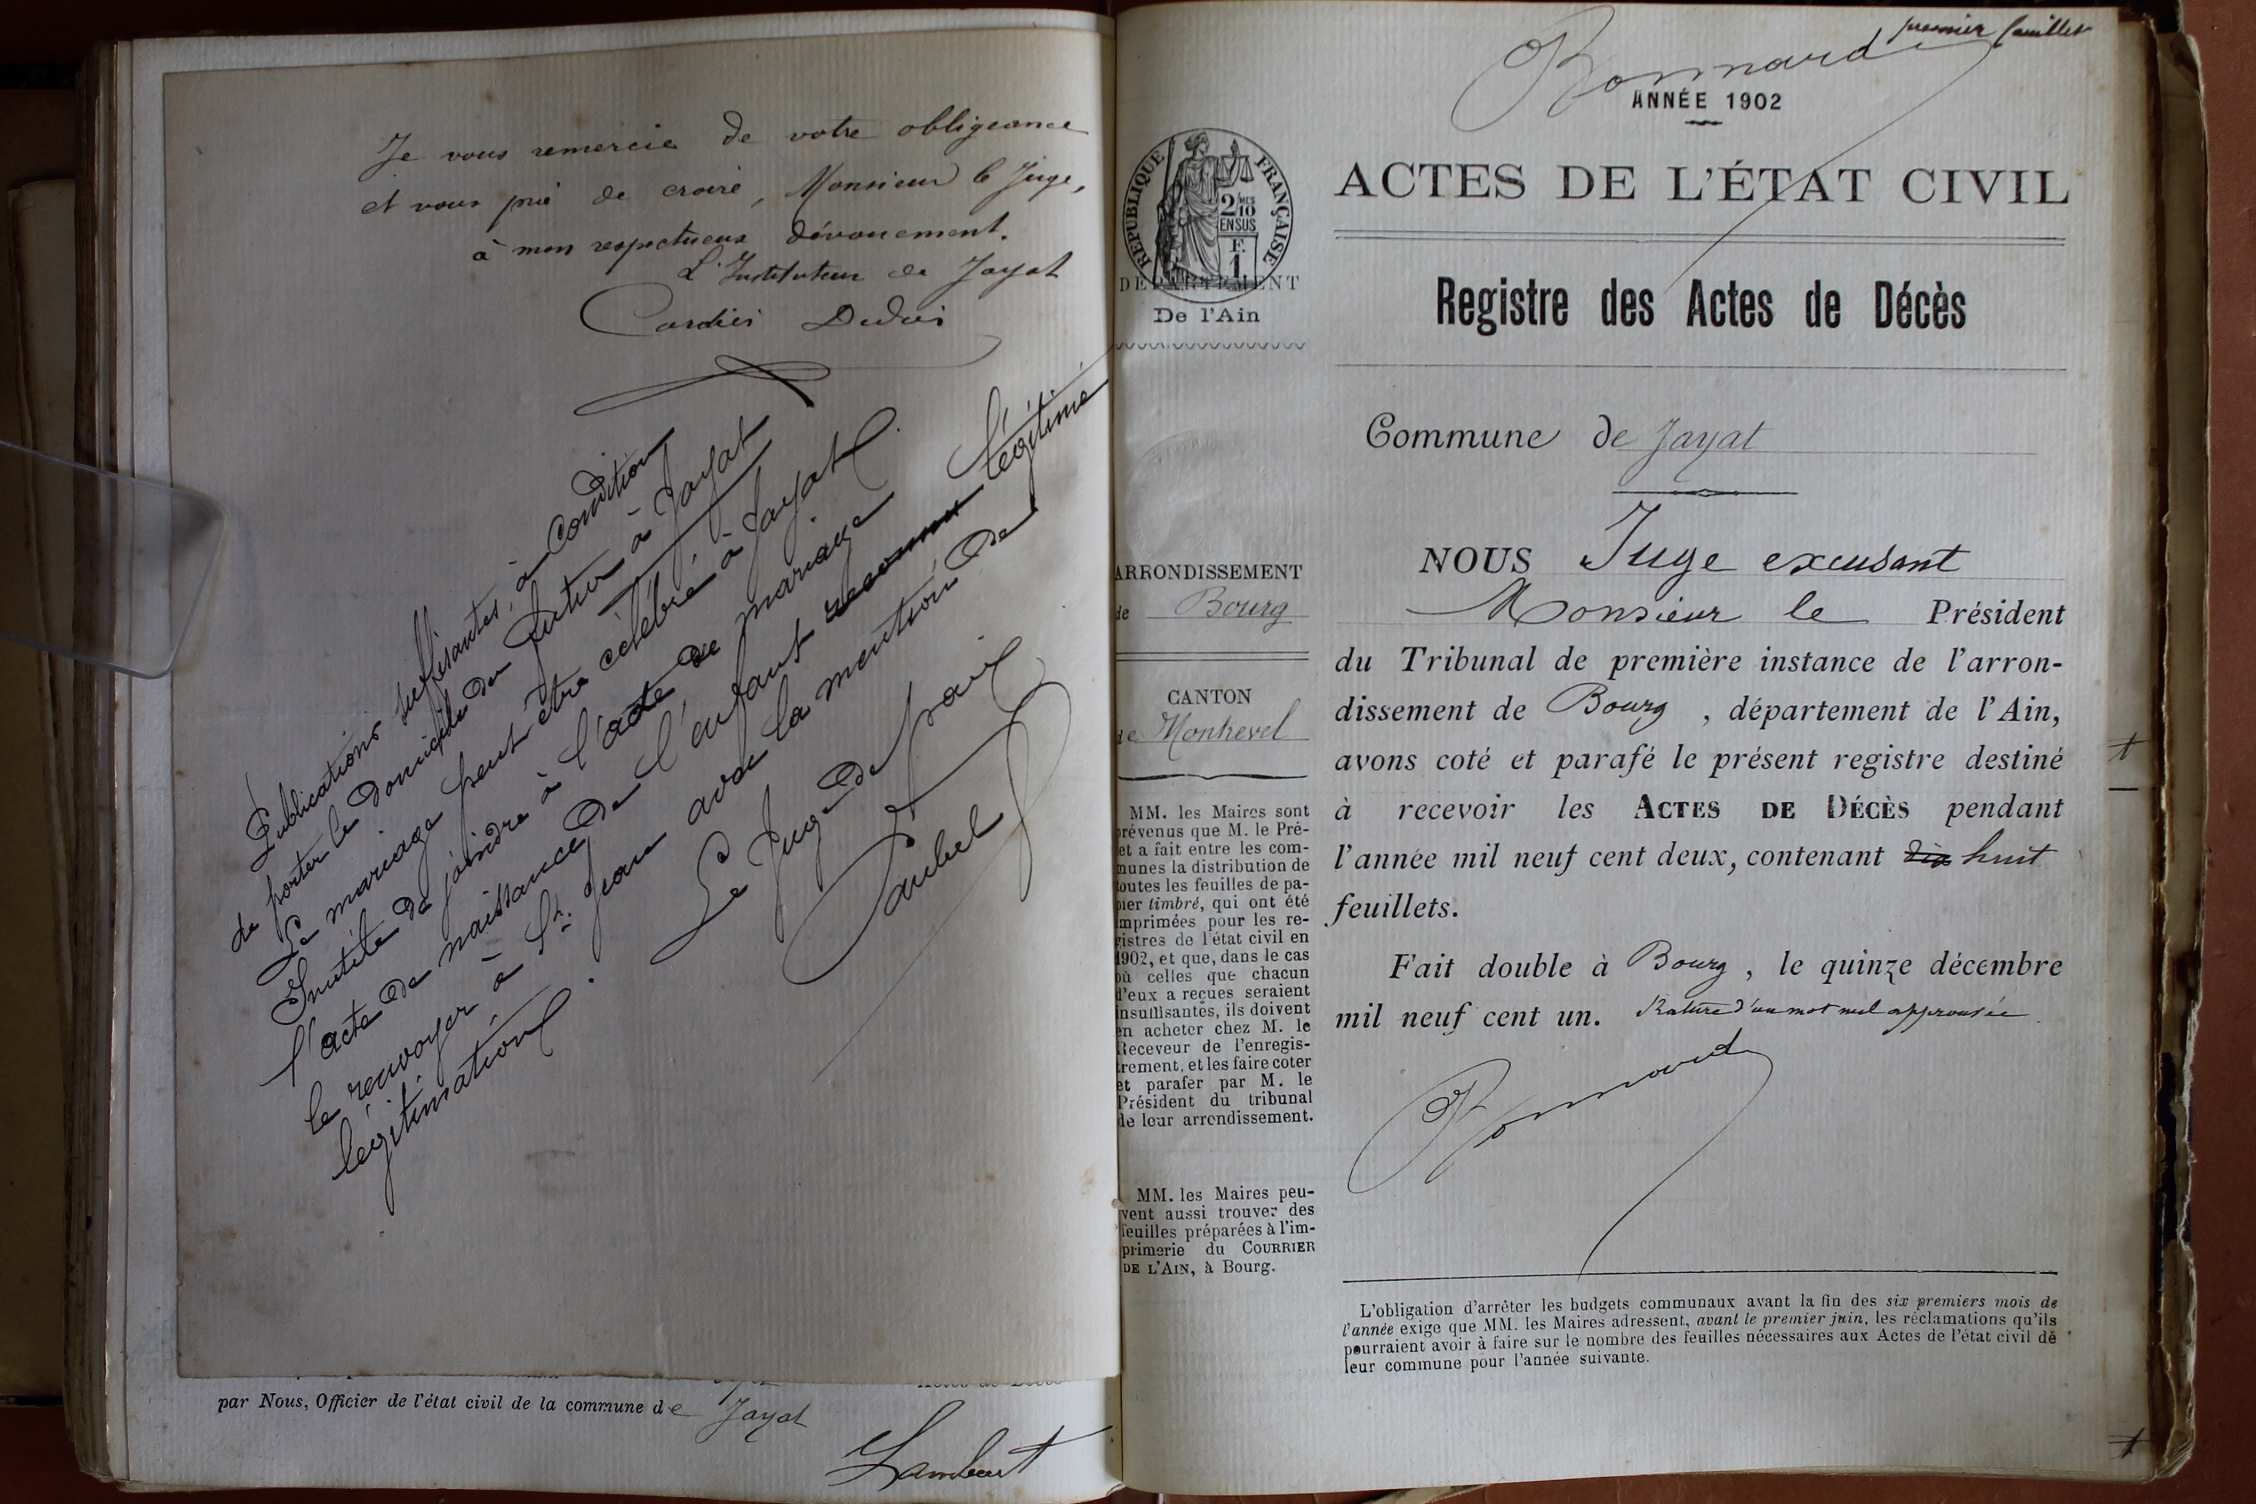 Je vous remercie de votre obligeance
et vous prie de croire, Monsieur le Juge,
à mon respectueux dévouement.
L'Instituteur de Jayat
Publications suffisantes, à condition
de porter le domicile du futur à Jayat
Le mariage peut être célébré à Jayat.
Inutile de joindre à l'acte de mariage
l'acte de naissance de l'enfant reconnu légitimé
le renvoyer à St. Jean avec la mention de
légitimation.
Le Juge de Paix
par Nous, Officier de l'état civil de la commune de Jayat
Lambert
premier feuillet
Bonnard
ANNÉE 1902
ACTES DE L'ÉTAT CIVIL
RÉPUBLIQUE FRANÇAISE
2/10 EN SUS
F. 1
DÉPARTEMENT
De l'Ain
Registre des Actes de Décès
Commune de Jayat
ARRONDISSEMENT
de Bourg
CANTON
de Montrevel
MM. les Maires sont
prévenus que M. le Pré-
et a fait entre les com-
munes la distribution de
toutes les feuilles de pa-
pier timbré, qui ont été
imprimées pour les re-
gistres de l'état civil en
1902, et que, dans le cas
où celles que chacun
d'eux a reçues seraient
insuffisantes, ils doivent
en acheter chez M. le
Receveur de l'enregis-
trement, et les faire coter
et parafer par M. le
Président du tribunal
de leur arrondissement.
MM. les Maires peu-
vent aussi trouver des
feuilles préparées à l'im-
primerie du COURRIER
DE L'AIN, à Bourg.
NOUS Juge excusant
Monsieur le Président
du Tribunal de première instance de l'arron-
dissement de Bourg, département de l'Ain,
avons coté et parafé le présent registre destiné
à recevoir les ACTES DE DÉCÈS pendant
l'année mil neuf cent deux, contenant dix huit
feuillets.
Fait double à Bourg, le quinze décembre
mil neuf cent un. Rature d'un mot nul approuvée
Bonnard
L'obligation d'arrêter les budgets communaux avant la fin des six premiers mois de
l'année exige que MM. les Maires adressent, avant le premier juin, les réclamations qu'ils
pourraient avoir à faire sur le nombre des feuilles nécessaires aux Actes de l'état civil de
leur commune pour l'année suivante.